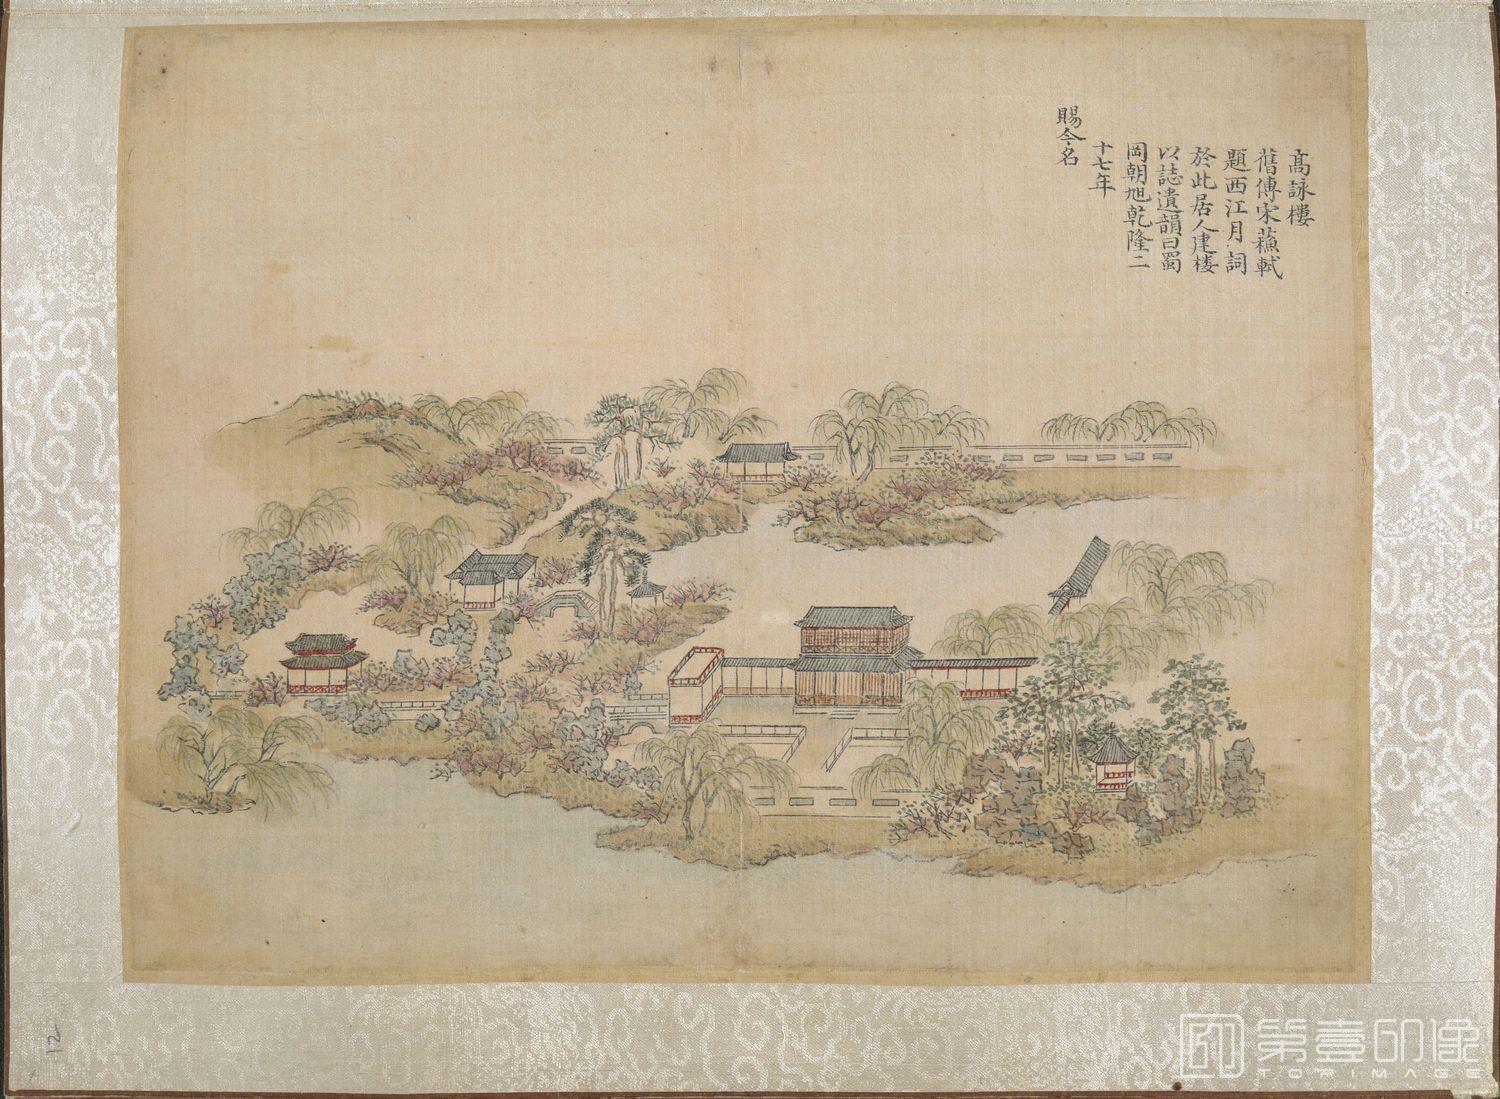 髙詠樓
舊傳宋蘓軾
題西江月詞
於此居人建楼
以誌遺韻曰蜀
岡朝旭乾隆二
十七年
賜今名
12
第壹印像
TOPIMAGE